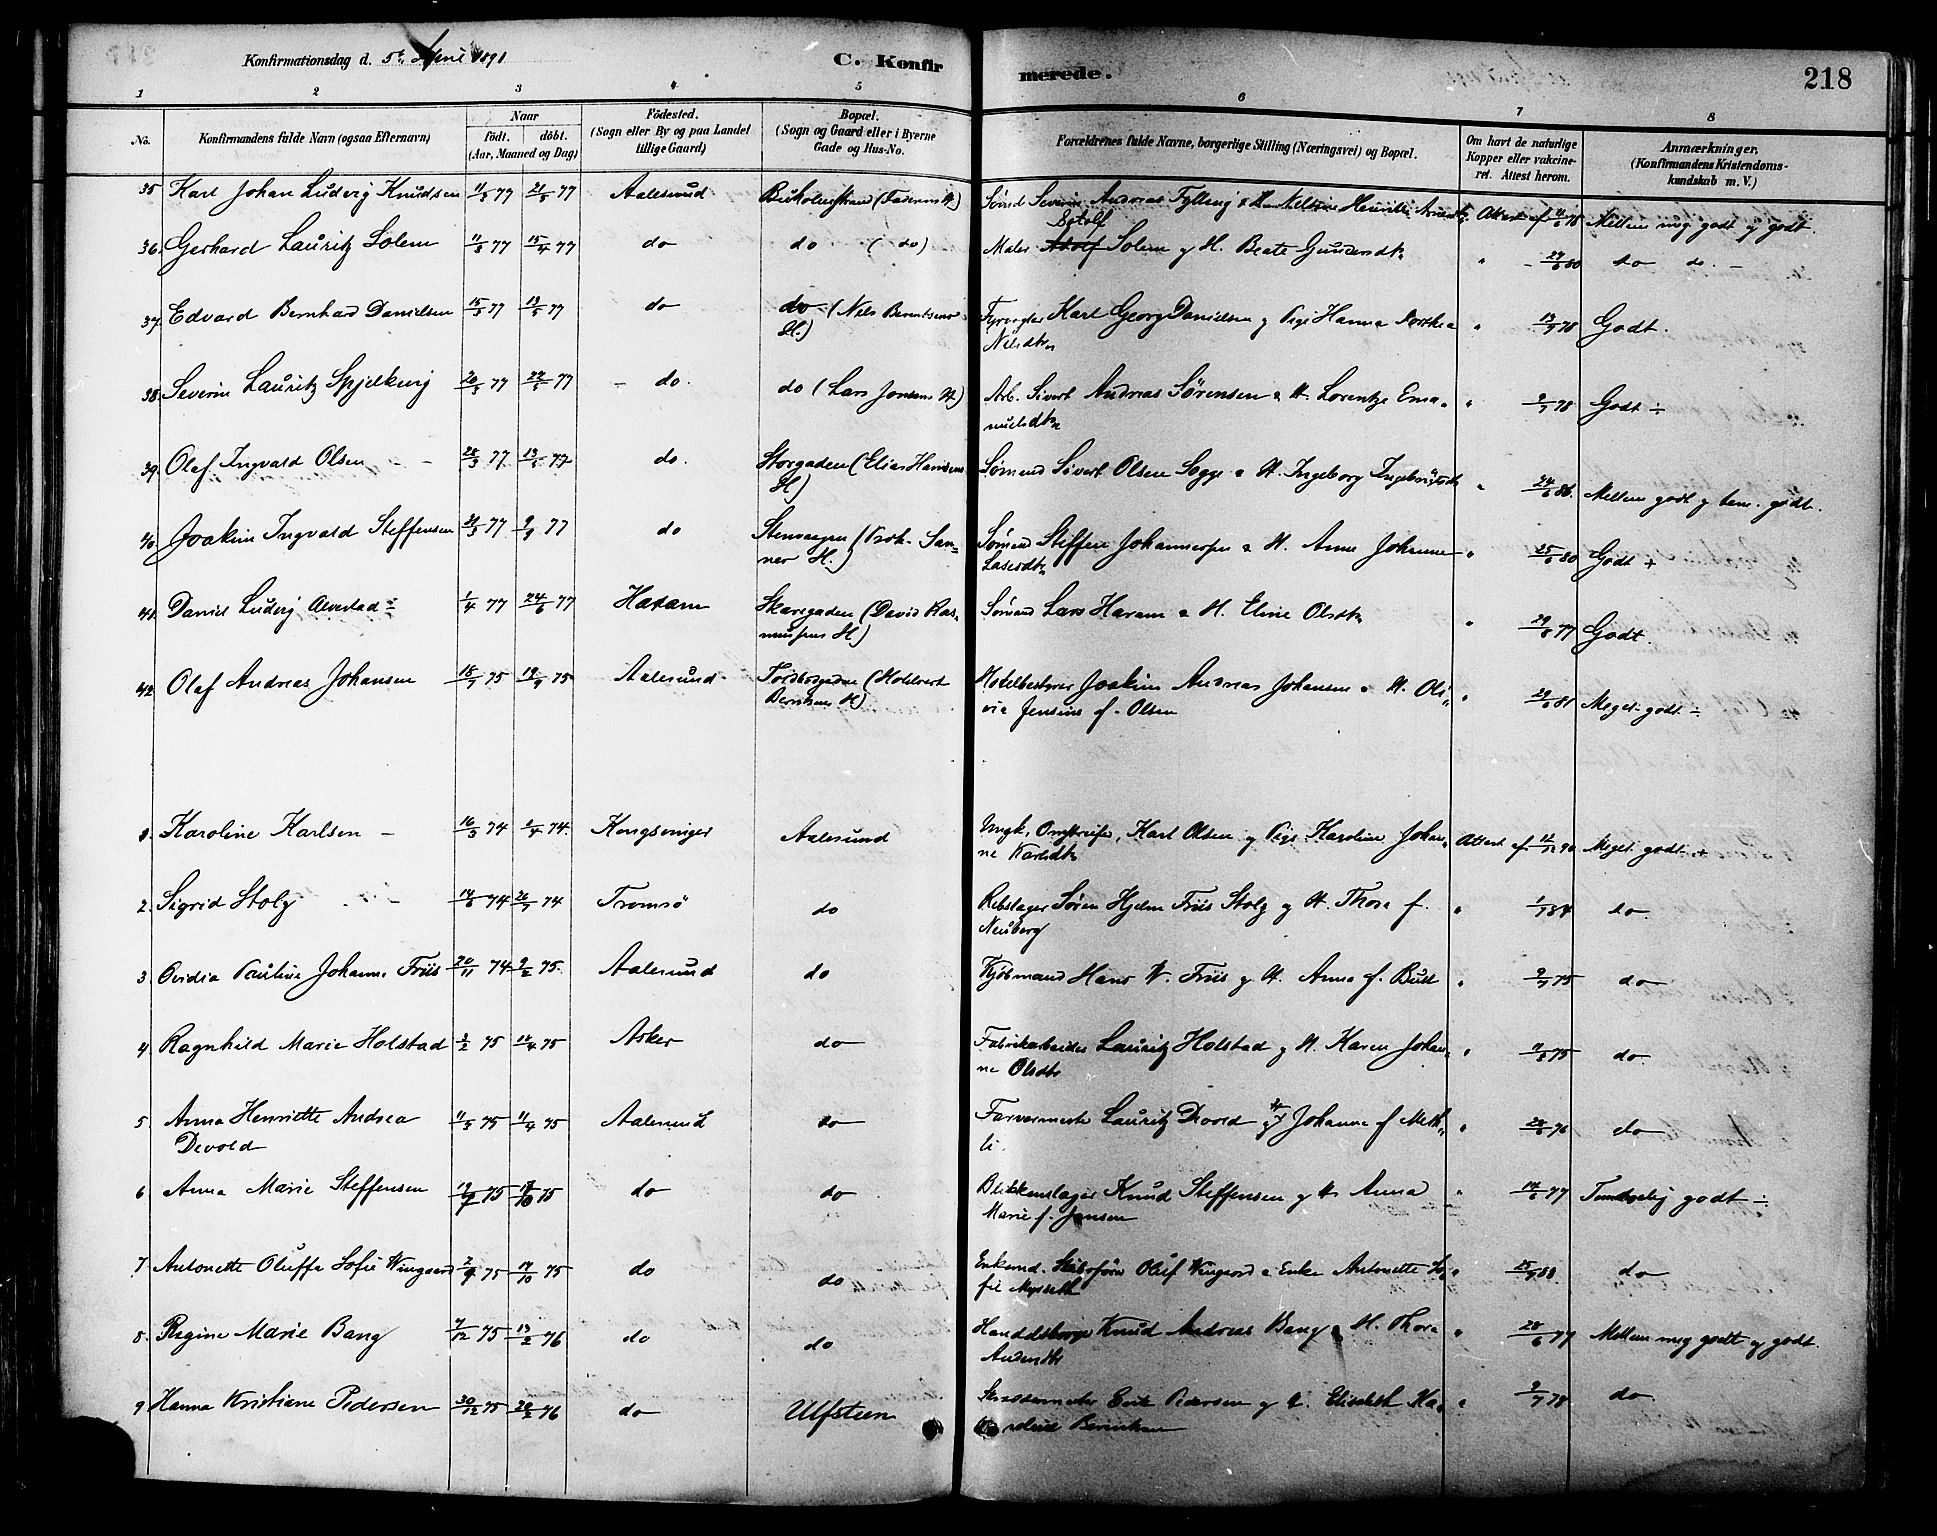 Konfirmationsdag d. 5te April 1891
C. Konfirmerede.
218
1 2 3 4 5 6 7 8
No. Konfirmandens fulde Navn (ogsaa Efternavn) Naar født. døbt. (Aar, Maaned og Dag) Fødested. (Sogn eller By og paa Landet tillige Gaard) Bopæl. (Sogn og Gaard eller i Byerne Gade og Hus-No. Forældrenes fulde Navne, borgerlige Stilling (Næringsvei) og Bopæl. Om havt de naturlige Kopper eller vaccineret. Attest herom. Anmærkninger. (Konfirmandens Kristendomskundskab m. V.)
35 Karl Johan Ludvig Knudsen 11/3 77 21/5 77 Aalesund Severin Andreas Fylling Attest af 78 Mellem meg godt og godt.
36. Gerhard Lauritz Solem 11/3 77 15/4 77 do do (do) Maler Botolf Solem og H. Beate Gundersdtr " 80 do do
37. Edvard Bernhard Danielsen 15/3 77 13/5 77 do do (Nils Berntsens H.) Karl Georg Danielsen og Pige Hanna Dorthea Nilsdtr " 13/9 78 Godt.
38. Severin Lauritz Spjelkevig 20/3 77 22/5 77 do. do (Lars Jonsens H) Arb. Sivert Andreas Sørensen & H. Lorentze Emanuelsdtr " 9/7 78 Godt ÷
39. Olaf Ingvald Olsen 28/3 77 13/5 77 do. Storgaden (Elias Hansens H) Sømand Sivert Olsen Sogge & H. Ingeborg " 24/6 86. Mellem godt og tem. godt.
40. Joakim Ingvald Steffensen 77 9/9 77 do Stenvaagen H.) Sømand Steffen Johannessen & H. Anne Johanne Lasesdtr " 25/6 80 Godt +
41. Daniel Ludvig Alvestad ÷ 1/4 77 24/6 77 Haram Skaregaden (David Rasmussens H) Sømand Lars Haram & H. Eline Olsdtr " 29/8 77 Godt.
42. Olaf Andreas Johansen 18/7 75 19/9 75 Aalesund Berntsens H) Hotelbestyrer Joakim Andreas Johansen & H. Olivia Jensine f. Olsen " 29/6 81 Meget godt ÷
1. Karoline Karlsen 16/3 74 2/4 74. Kongsvinger Aalesund Karl Olsen og Pige Karoline Johanne Karlsdtr Attest af 12/12 90 Meget godt +
2. Sigrid Stolz 14/6 74 26/7 74 Tromsø do Rebslager Søren Hjelm Friis Stolz og H. Thora f. Neuberg " 1/7 84 do
3 Ovidia Pauline Johanne Friis 20/11 74 2/2 75. Aalesund do Kjøbmand Hans W. Friis og H. Anna f. Bull " 9/7 75 do
4 Ragnhild Marie Holstad 2/2 75 18/4 75 Asker do Fabrikarbeider Lauritz Holstad og H. Karen Johanne Olsdtr " 11/8 75 do.
5. Anna Henriette Andrea Devold 11/3 75 11/4 75 Aalesund do Farvermester Lauritz Devold og H. Johanne f. " 28/6 76 do
6 Anna Marie Steffensen 19/9 75 17/10 75 do do Blikkenslager Knud Steffensen og H. Anna Marie f. Jensen " 14/6 77 Temmelig godt ÷
7. Antonette Oluffa Sofie Wingaard 2/9 75 17/10 75 do do Skibsfører Oluf Wingaard & Enke Antonette Sofie Myrseth " 88 do
8. Regine Marie Bang 7/12 75 13/2 76 do do Knud Andreas Bang & H. Thora " 28/6 77 Mellem meg godt og godt
9 Hanna Kristiane Pedersen 30/12 75 20/2 76 do Ulfsteen Erik Pedersen og H. Elisabeth " 9/7 78 do.